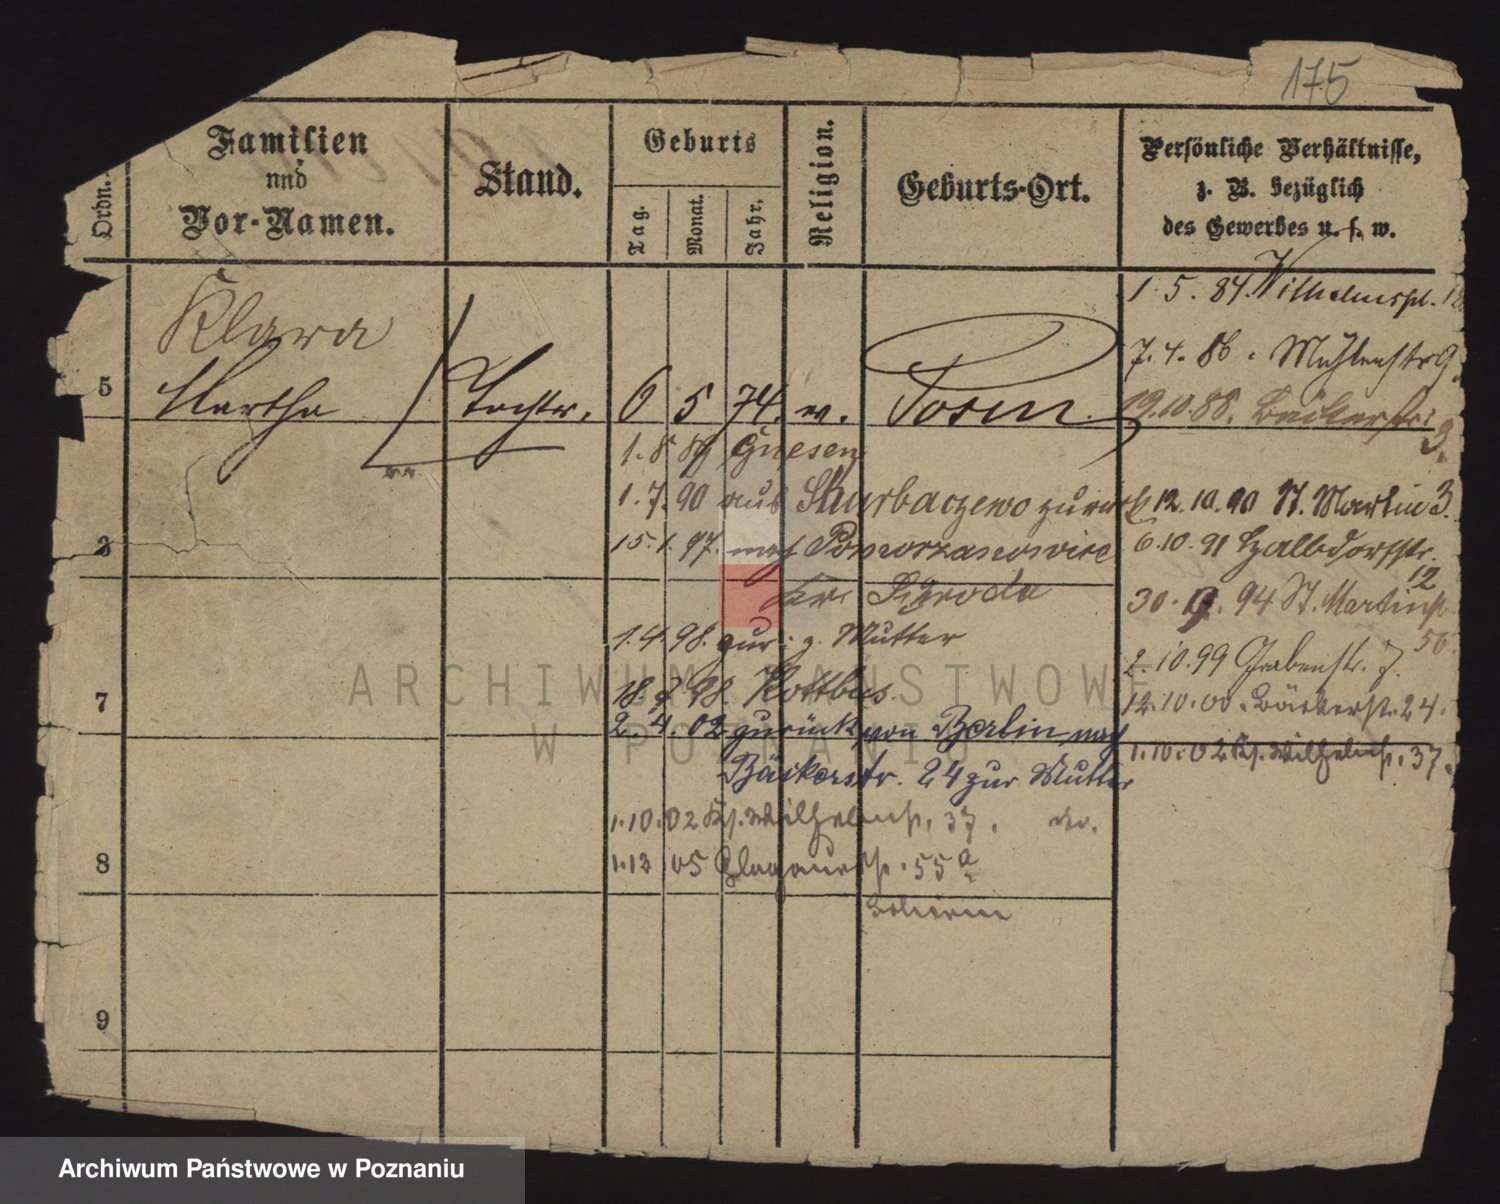 175
Ordn.
Familien
und
Vor-Namen.
Stand.
Geburts
Tag.
Monat.
Jahr.
Religion.
Geburts-Ort.
Persönliche Verhältnisse,
z. B. bezüglich
des Gewerbes u. s. w.
1. 5. 84. Wilhelmspl. 18
Klara
7. 4. 86. Mühlenstr 9.
5 Martha Tochter. 6 5 74. ev. Posen.
19.10.88. Bäckerstr.
3.
1. 8 89 Gnesen
1. 7. 90 aus Skurbaczewo zurück
12. 10. 90 St. Martin 3.
15. 1. 97. nach Pomorzanowice
6. 10. 91 Halbdorfstr.
12
Kr. Schroda
30. 9. 94 St. Martinstr
56.
1. 4. 98. zur. z. Mutter
2. 10. 99 Grabenstr. 7.
7
18. 9. 98. Kottbus.
12. 10. 00. Bäckerstr. 24.
2. 4. 02 zurück von Berlin nach
1. 10. 02 Ks. Wilhelmstr. 37.
Bäckerstr. 24 zur Mutter
1. 10. 02 Ks. Wilhelmstr. 37.
8
1. 12 05 Glogauerstr. 55a
9
ARCHIWUM PAŃSTWOWE
W POZNANIU
Archiwum Państwowe w Poznaniu